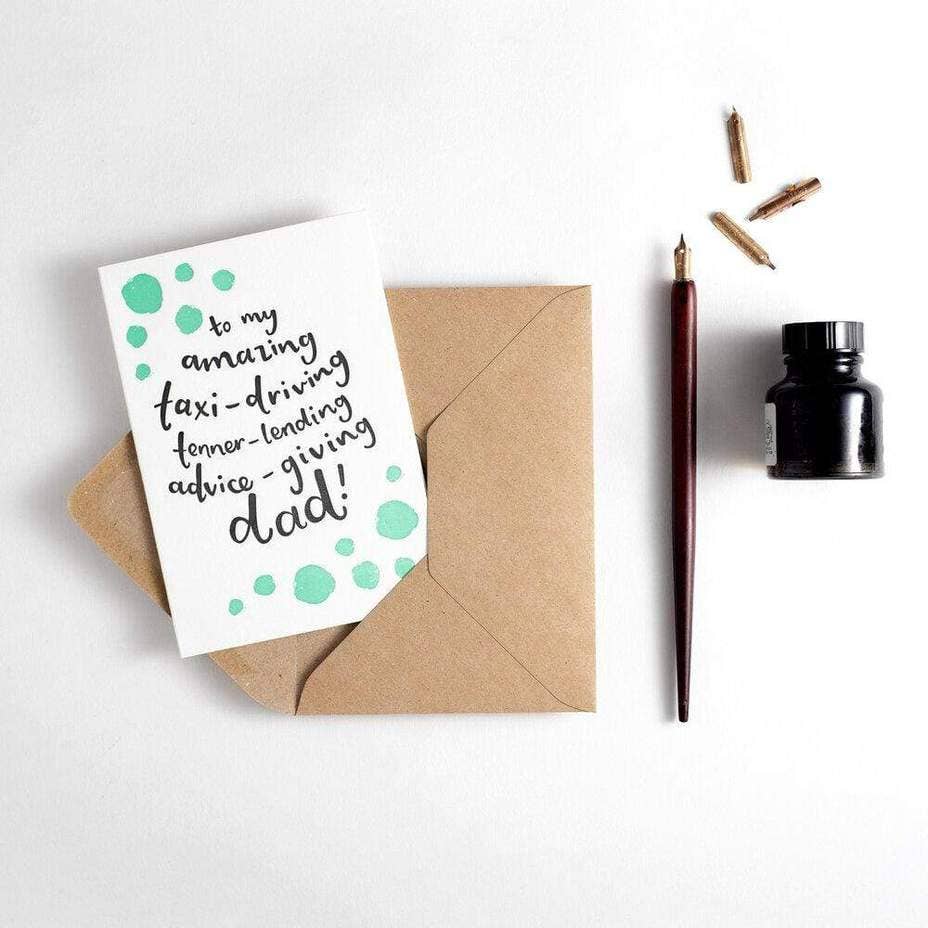 to my
amazing
taxi-driving
tenner-lending
advice-giving
dad!